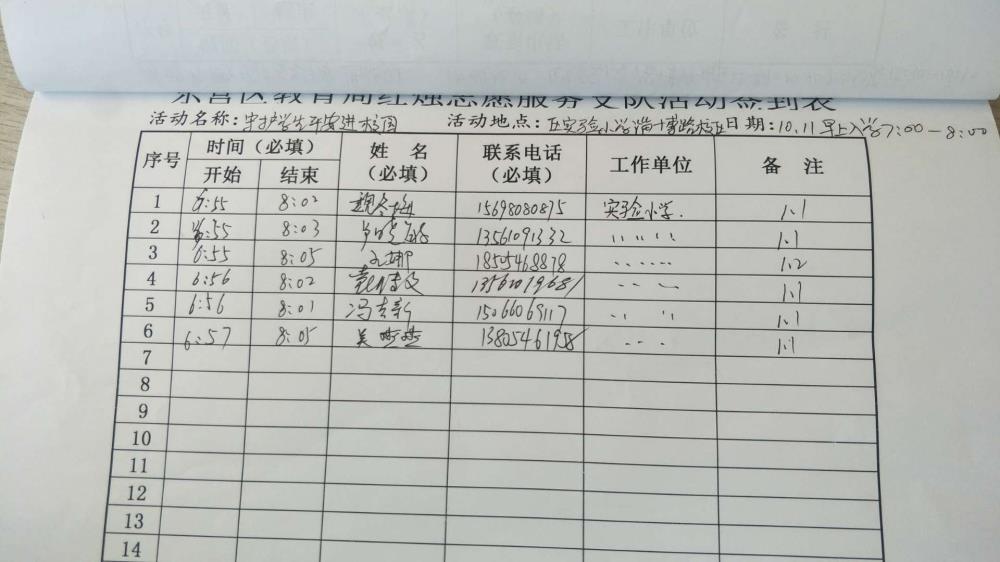 东营区教育局红烛志愿服务支队活动签到表
活动名称：守护学生平安进校园 活动地点：区实验小学 日期：10.11 早上入学7:00－8:00
序号 时间（必填） 姓名（必填） 联系电话（必填） 工作单位 备注
开始 结束
1 6:55 8:02 魏冬梅 15698080875 实验小学. 1.1
2 6:55 8:03 13561091332 〃 〃 〃 〃 1.1
3 6:55 8:05 18505468878 〃 〃 〃 1.2
4 6:56 8:02 〃 〃 1.1
5 6:56 8:01 冯志新 15066069117 〃 〃 1.1
6 6:57 8:05 吴燕燕 13805461958 〃 〃 1.1
7
8
9
10
11
12
13
14